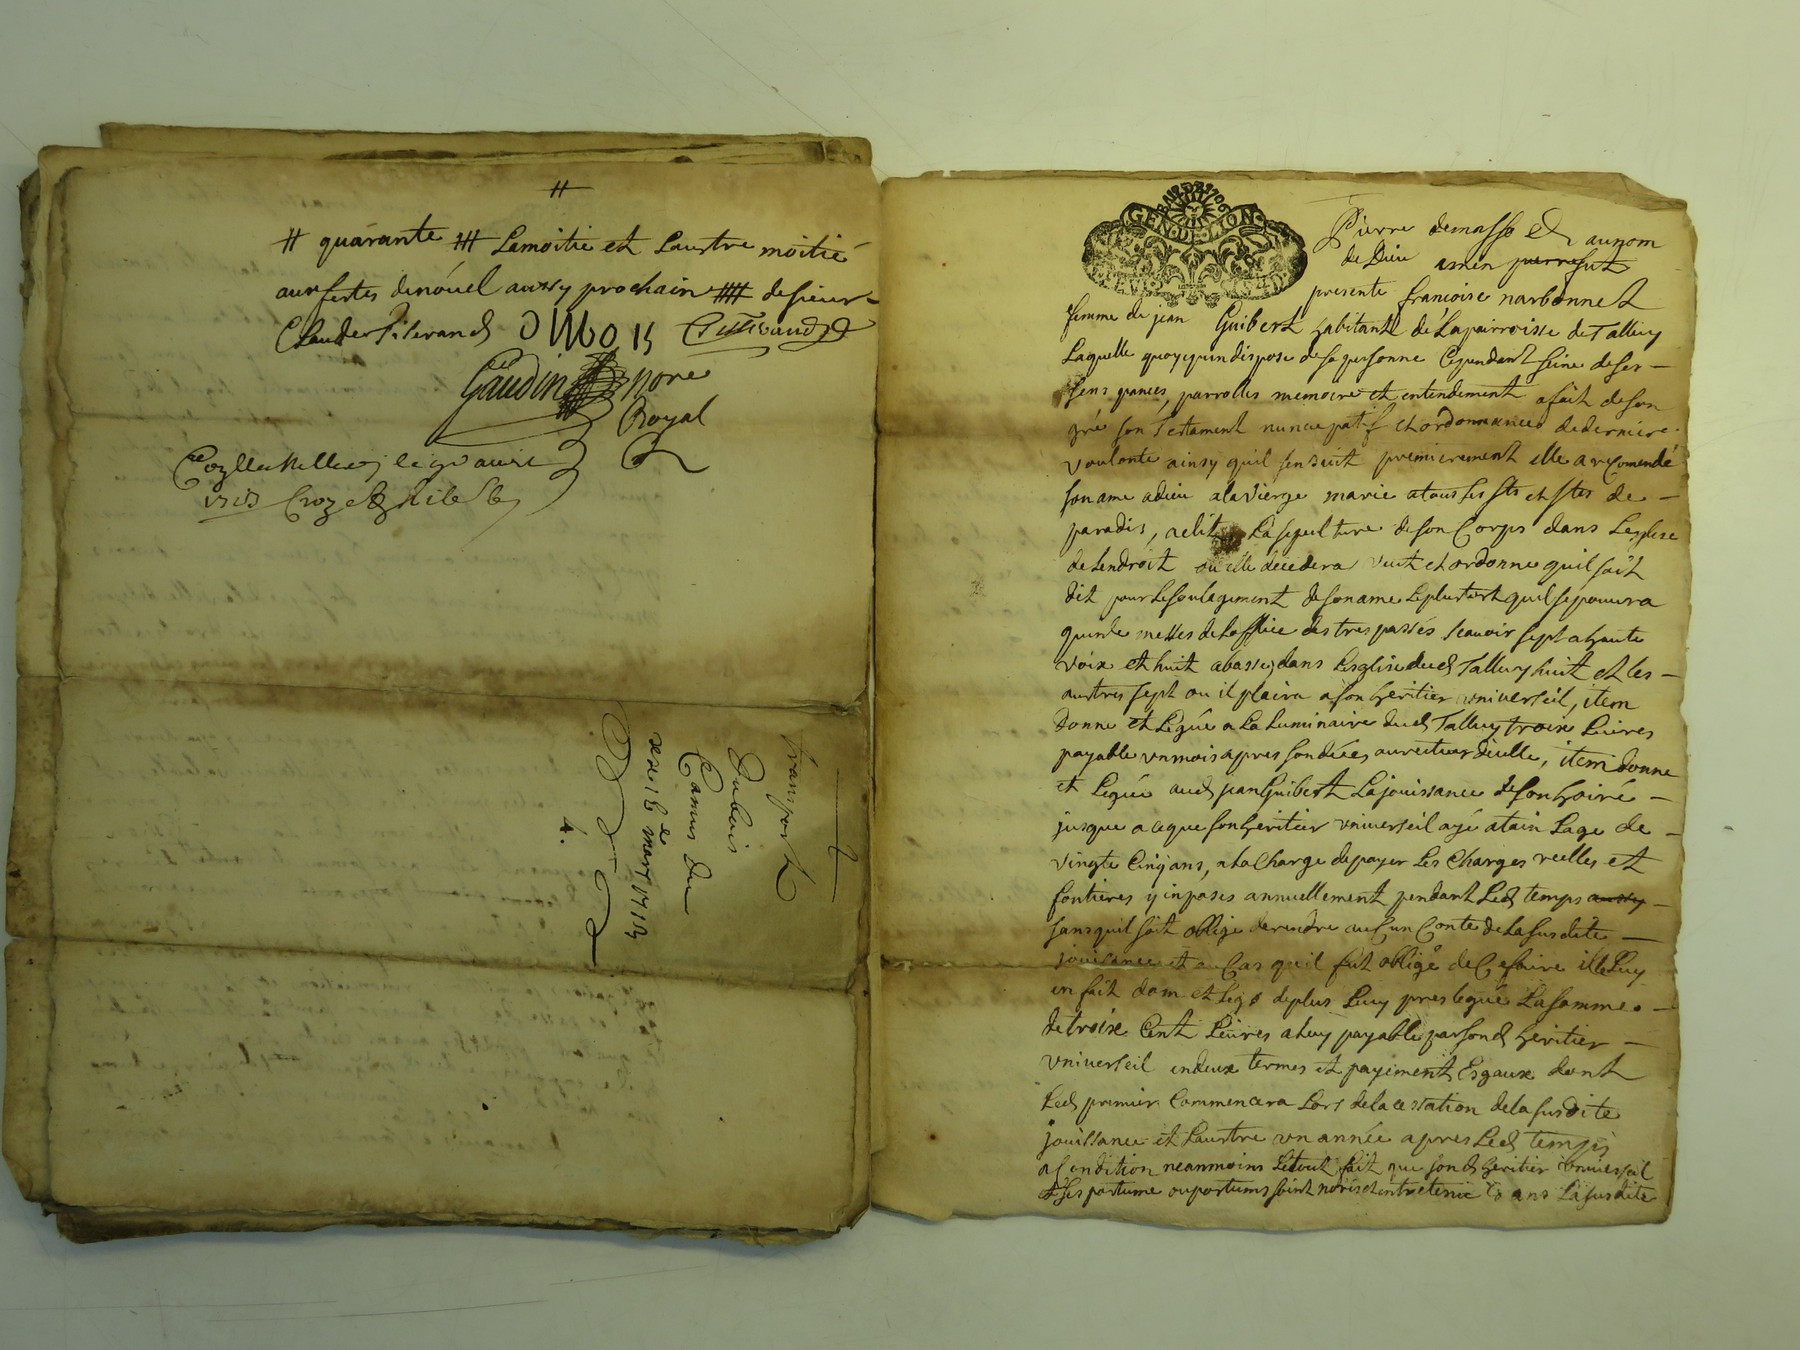 #
# quarante ## Lamoitie et Laustre moitié
aux festes denóuel aussy prochain ## de sieur
Claude
Gaudin nore
Royal
transport
Dubois
Camus du
16e mars 1713
4.
GEN. DE LYON
Pierre demasso Ed aunom
de Dieu amen
presente francoise narbonnet
femme de jean Guibert habitante de Laparroisse de Talluy
Laquelle quoyquindispose desapersonne Cependant seine deses
sens, parrolles memoire et entendement afait deson
gré son Testament nuncupatif et ordonnance dederniere
voulonte ainsy quil sensuit premierement elle arecomendé
soname adieu alavierge marie atous les sts et stes de
paradis, aelit La sepulture de son Corps dans Leglise
delendroit ou elle decedera veut et ordonne quil soit
dit pour Lesoulagement desoname Leplustost quil sepourra
quinze messes deLoffice des trespassés scauoir sept ahaute
voix et huit abasse, dans Lesglise dud Talluy huit et les
austres sept ou il plaira ason heritier universeil, item
Donne et Légue a La Luminaire dud Talluy troix Liures
payable unmois apres sondéces aurecteur dicelle, item donne
et Légue aud jean Guibert Lajouissance de son hoirié
jusque aceque sonheritier universeil ayé atain Lage de
vingte Cinq ans, ala Charge depayer Les Charges reelles et
fontieres y inposés annuellement pendant Led temps aussy
sans quil soit obligé derendre aucun Conte deLasusdite
jouissance et au Cas quil fut obligé deCefaire elle Luy
en fait dom et Légs deplus Luy pres legué La somme
detroix Cent Liures aluy payable parsond heritier
universeil endeux termes et payement Esgaux dont
Led premier Commencera Lors delacessation delasusdite
jouissance et Laustre un année apres Led temps
aCondition neanmoins Letout fait que sond heritier universeil